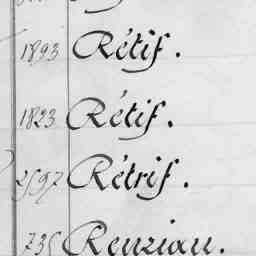 1893 Rétif.
1823 Rétif.
2597 Rétrif.
735 Renziau.